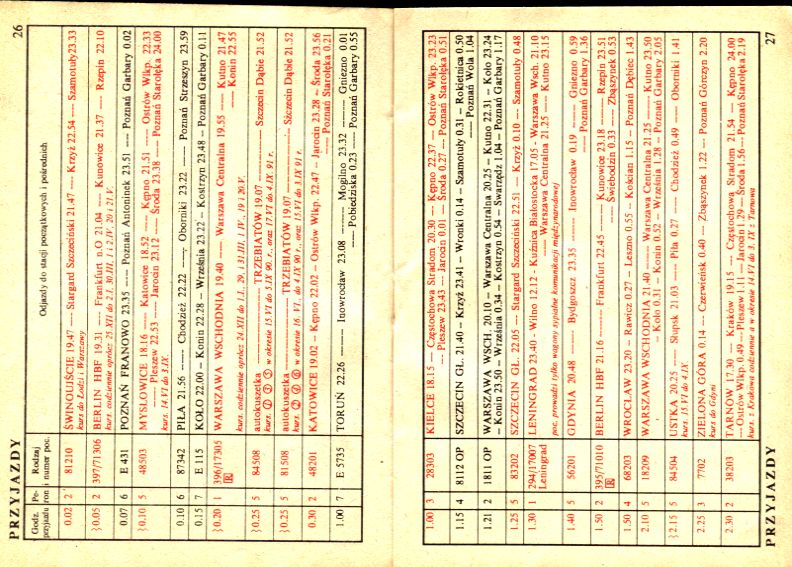 PRZYJAZDY
26
Godz. przyjazdu
Pe-ron
Rodzaj i numer poc.
Odjazdy do stacji początkowych i pośrednich
0.02 2 81210 ŚWINOUJŚCIE 19.47 — Stargard Szczeciński 21.47 — Krzyż 22.54 — Szamotuły 23.33
kurs do Łodzi i Warszawy
0.05 2 397/71306 BERLIN HBF 19.31 — Frankfurt n.O 21.04 — Kunowice 21.37 — Rzepin 22.10
kurs. codziennie oprócz: 25.XII do 2.I, 30.III, 1 i 2.IV, 20 i 21.V.
0.07 6 E 431 POZNAŃ FRANOWO 23.35 — Poznań Antoninek 23.51 — Poznań Garbary 0.02
0.10 5 48503 MYSŁOWICE 18.16 — Katowice 18.52 — Kępno 21.51 — Ostrów Wlkp. 22.33
— Pleszew 22.53 — Jarocin 23.12 — Środa 23.38 — Poznań Starołęka 24.00
kurs. 14.VI do 3.IX
0.10 6 87342 PIŁA 21.56 — Chodzież 22.22 — Oborniki 23.22 — Poznań Strzeszyn 23.59
0.15 7 E 115 KOŁO 22.00 — Konin 22.28 — Września 23.22 — Kostrzyn 23.48 — Poznań Garbary 0.11
0.20 1 396/17305 WARSZAWA WSCHODNIA 19.40 — Warszawa Centralna 19.55 — Kutno 21.47
R — Konin 22.55
kurs. codziennie oprócz: 24.XII do 1.I, 29, i 31.III, 1.IV., 19 i 20.V.
0.25 5 84508 autokuszetka — TRZEBIATÓW 19.07 — Szczecin Dąbie 21.52
kurs. w okresie 15.VI do 5.IX 90 r., oraz 17.VI do 4.IX. 91 r.
0.25 5 81508 autokuszetka — TRZEBIATÓW 19.07 — Szczecin Dąbie 21.52
kurs. w okresie 16.VI, do 4.IX 90 r. oraz 15.VI do 3.IX 91 r.
0.30 2 48201 KATOWICE 19.02 — Kępno 22.02 — Ostrów Wlkp. 22.47 — Jarocin 23.28 — Środa 23.56
— Poznań Starołęka 0.21
1.00 7 E 5735 TORUŃ 22.26 — Inowrocław 23.08 — Mogilno 23.32 — Gniezno 0.01
— Pobiedziska 0.23 — Poznań Garbary 0.55
1.00 3 28303 KIELCE 18.15 — Częstochowa Stradom 20.30 — Kępno 22.37 — Ostrów Wlkp. 23.23
— Pleszew 23.43 — Jarocin 0.01 — Środa 0.27 — Poznań Starołęka 0.51
1.15 4 8112 OP SZCZECIN GŁ. 21.40 — Krzyż 23.41 — Wronki 0.14 — Szamotuły 0.31 — Rokietnica 0.50
— Poznań Wola 1.04
1.21 2 1811 OP WARSZAWA WSCH. 20.10 — Warszawa Centralna 20.25 — Kutno 22.31 — Koło 23.24
— Konin 23.50 — Września 0.34 — Kostrzyn 0.54 — Swarzędz 1.04 — Poznań Garbary 1.17
1.25 5 83202 SZCZECIN GŁ. 22.05 — Stargard Szczeciński 22.51 — Krzyż 0.10 — Szamotuły 0.48
1.30 1 294/17007 LENINGRAD 23.40 - Wilno 12.12 - Kuźnica Białostocka 17.05 - Warszawa Wsch. 21.10
Leningrad — Warszawa Centralna 21.25 — Kutno 23.15
poc. prowadzi tylko wagony sypialne komunikacji międzynarodowej
1.40 5 56201 GDYNIA 20.48 — Bydgoszcz 23.35 — Inowrocław 0.19 — Gniezno 0.59
— Poznań Garbary 1.36
1.50 2 395/71010 BERLIN HBF 21.16 — Frankfurt 22.45 — Kunowice 23.18 — Rzepin 23.51
R — Świebodzin 0.33 — Zbąszynek 0.53
1.50 4 68203 WROCŁAW 23.20 — Rawicz 0.27 — Leszno 0.55 — Kościan 1.15 — Poznań Dębiec 1.43
2.10 5 18209 WARSZAWA WSCHODNIA 21.40 — Warszawa Centralna 21.25 — Kutno 23.50
— Koło 0.31 — Konin 0.52 — Września 1.28 — Poznań Garbary 2.05
2.15 5 84504 USTKA 20.25 — Słupsk 21.03 — Piła 0.27 — Chodzież 0.49 — Oborniki 1.41
kurs. 15.VI do 4.IX
2.25 3 7702 ZIELONA GÓRA 0.14 — Czerwieńsk 0.40 — Zbąszynek 1.22 — Poznań Górczyn 2.20
kurs do Gdyni
2.30 2 38203 TARNÓW 17.30 — Kraków 19.15 — Częstochowa Stradom 21.54 — Kępno 24.00
— Ostrów Wlkp. 0.49 — Pleszew 1.11 — Jarocin 1.29 — Środa 1.56 — Poznań Starołęka 2.19
kurs. z Krakowa codziennie a w okresie 14.VI do 3.IX z Tarnowa
PRZYJAZDY
27